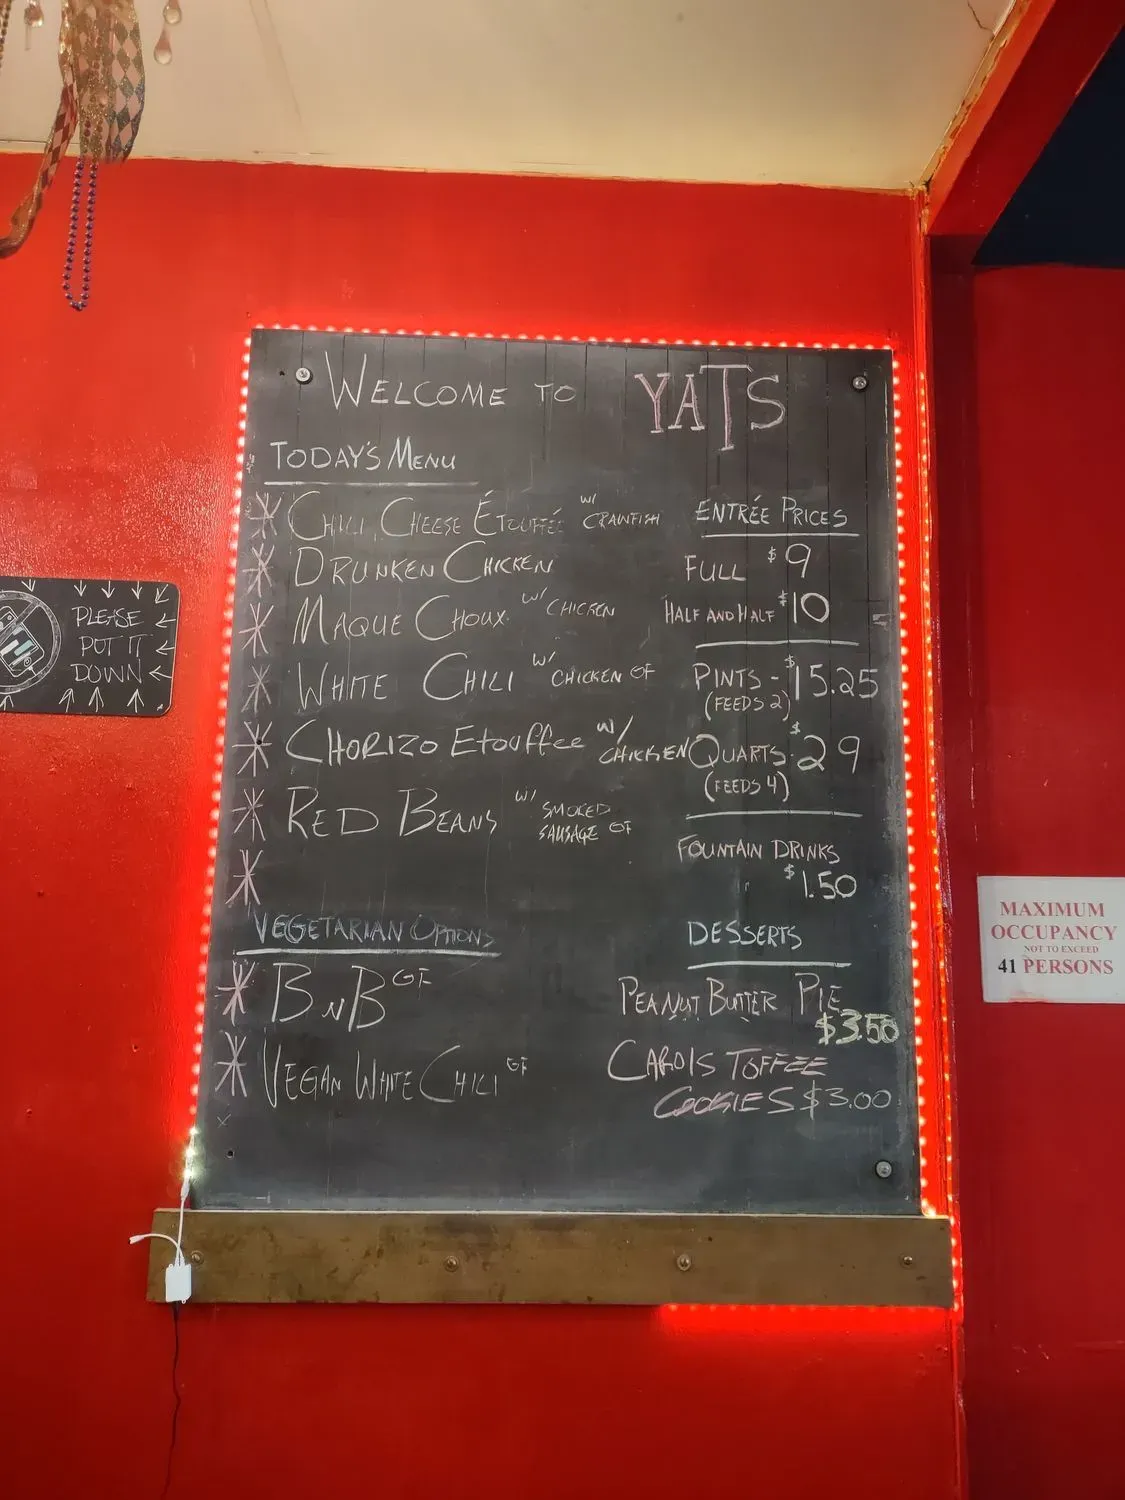 WELCOME TO YATS
TODAY'S MENU
CHILI CHEESE ÉTOUFFÉE w/ CRAWFISH
DRUNKEN CHICKEN
MAQUE CHOUX w/ CHICKEN
WHITE CHILI w/ CHICKEN GF
CHORIZO Etouffee w/ CHICKEN
RED BEANS w/ SMOKED
SAUSAGE GF
VEGETARIAN OPTIONS
B N B GF
VEGAN WHITE CHILI GF
ENTRÉE PRICES
FULL $9
HALF AND HALF $10
PINTS - $15.25
(FEEDS 2)
QUARTS - $29
(FEEDS 4)
FOUNTAIN DRINKS
$1.50
DESSERTS
PEANUT BUTTER PIE
$3.50
CAROLS TOFFEE
COOKIES $3.00
PLEASE
PUT IT
DOWN
MAXIMUM
OCCUPANCY
NOT TO EXCEED
41 PERSONS